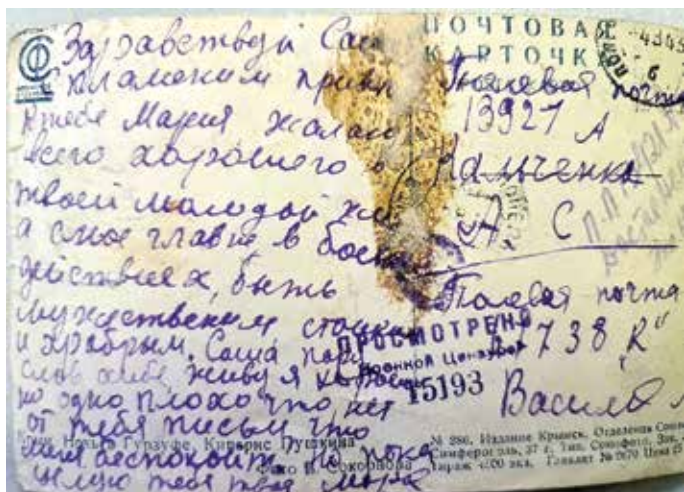 Здравствуй Саш
с пламеним приве
к тебе Мария желаю
всего хорошего в
твоей молодой жи
а смое главне в боев
действиях, быть
мужественим стойки
и храбрым. Саша пару
слов живу я хорош
но одно плохо что нет
от тебя письм что
меня беспокоит, но пока
целую тебя твоя Мара
ПОЧТОВАЯ
КАРТОЧКА
Полевая почта
13927 А
Кальченко
А С
Полевая почта
738 "К"
Васил
ПРОСМОТРЕНО
Военной Цензурой
15193
Новый Гурзуфе, Кипарис Пушкина
Фото В. Сокорнова
№ 286. Издание Крымск. Отделения Союз
Симферополь, 37 г. Тип. Союзфото. Зак.
Тираж 000 экз. Главлит № 2670 Цена